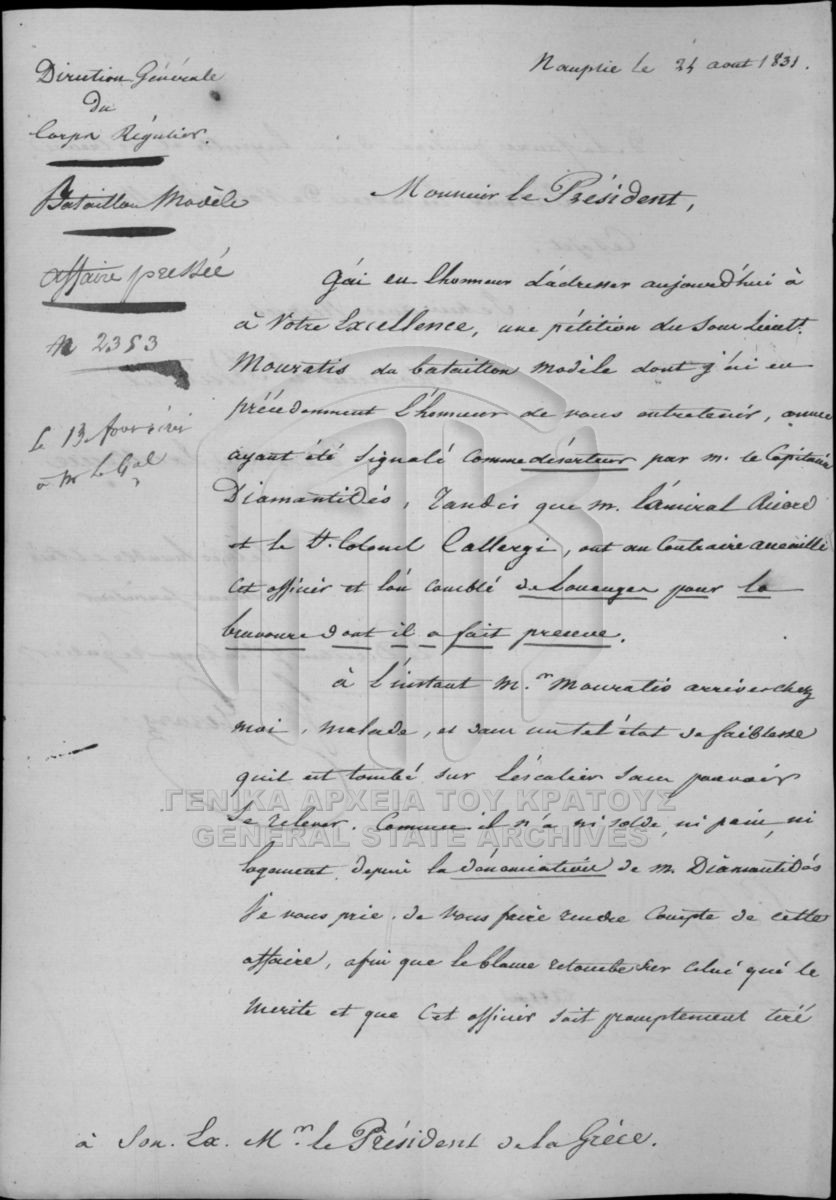 Nauplie le 24 aout 1831.
Direction Générale
du
Corps Régulier.
Bataillon Modèle
affaire pressée
N 2353
Le 13
à Mr le Gal
Monsieur le Président,
J'ai eu l'honneur d'adresser aujourd'hui à
à Votre Excellence, une pétition du Sous Lieutt.
Mouratis du bataillon modèle dont j'ai eu
précédemment l'honneur de vous entretenir, comme
ayant été signalé comme déserteur par m. le Capitaine
Diamantidés, Tandis que m. l'amiral Ricord
et le Lt. Colonel Callergi, ont au Contraire accueilli
Cet officier et l'on comblé de louanges pour la
bravoure dont il a fait preuve.
à l'instant M.r Mouratis arrive chez
moi, malade, et dans un tel état de faiblesse
qu'il est tombé sur l'escalier sans pouvoir
Se relever. Comme il n'a ni solde, ni pain, ni
logement depuis la dénonciation de m. Diamantidés
Je vous prie de vous faire rendre Compte de cette
affaire, afin que le blame retombe sur celui qui le
merite et que Cet officier soit promptement tiré
à Son. Ex. Mr. le Président de la Grèce.
ΓΕΝΙΚΑ ΑΡΧΕΙΑ ΤΟΥ ΚΡΑΤΟΥΣ
GENERAL STATE ARCHIVES